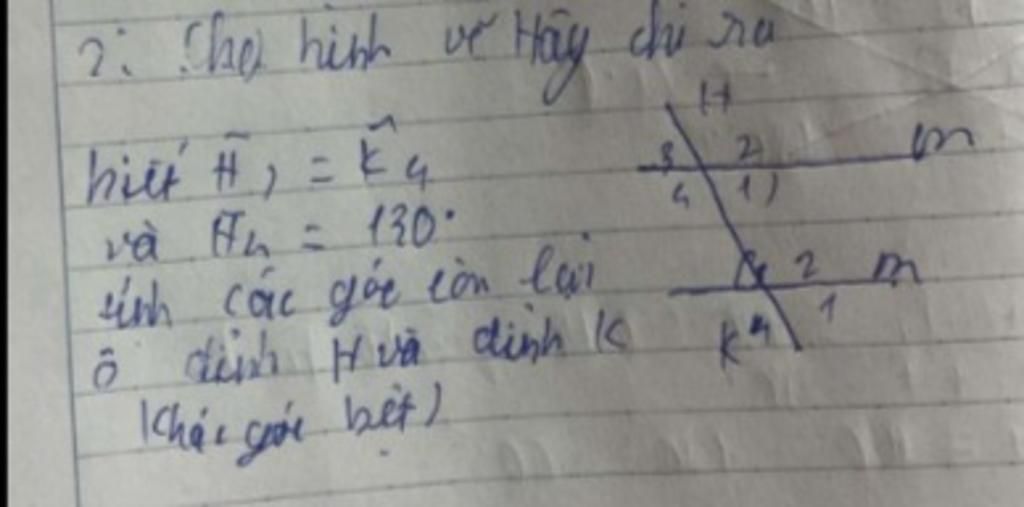 2: Cho hình vẽ Hãy chỉ ra
biết H₁ = K̂₄
và H₄ = 130°
tính các góc còn lại
ở đỉnh H và đỉnh K
(Khác góc bẹt)
H
3 2 m
4 1
2 m
1
K 4